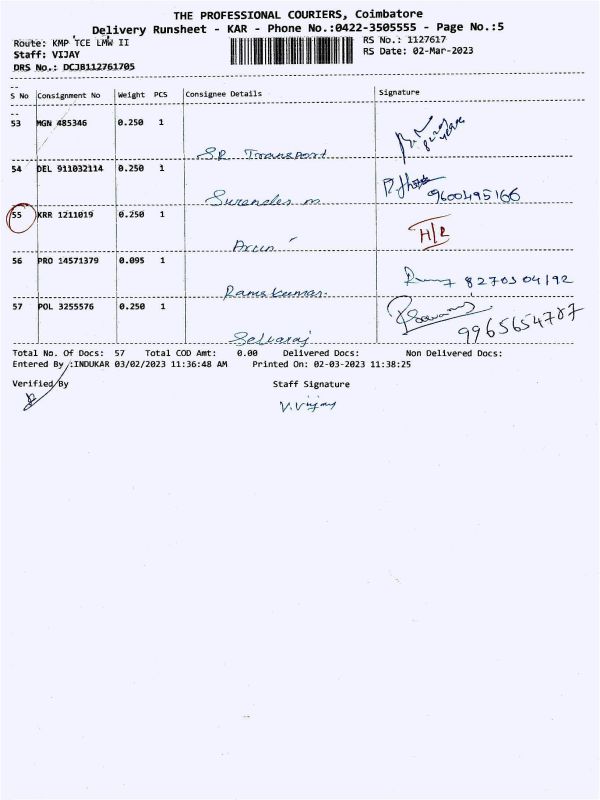 THE PROFESSIONAL COURIERS, Coimbatore
Delivery Runsheet - KAR - Phone No.:0422-3505555 - Page No.:5
Route: KMP TCE LMW II
RS No.: 1127617
Staff: VIJAY
RS Date: 02-Mar-2023
DRS No.: DCJB112761705
S No Consignment No Weight PCS Consignee Details Signature
53 MGN 485346 0.250 1
SR Transport
54 DEL 911032114 0.250 1
Surender m 9600495166
55 KRR 1211019 0.250 1 H/R
Arun
56 PRO 14571379 0.095 1
Ramekumar.
57 POL 3255576 0.250 1
Selvaraj 9965654787
Total No. Of Docs: 57 Total COD Amt: 0.00 Delivered Docs: Non Delivered Docs:
Entered By :INDUKAR 03/02/2023 11:36:48 AM Printed On: 02-03-2023 11:38:25
Verified By Staff Signature
V.Vijay